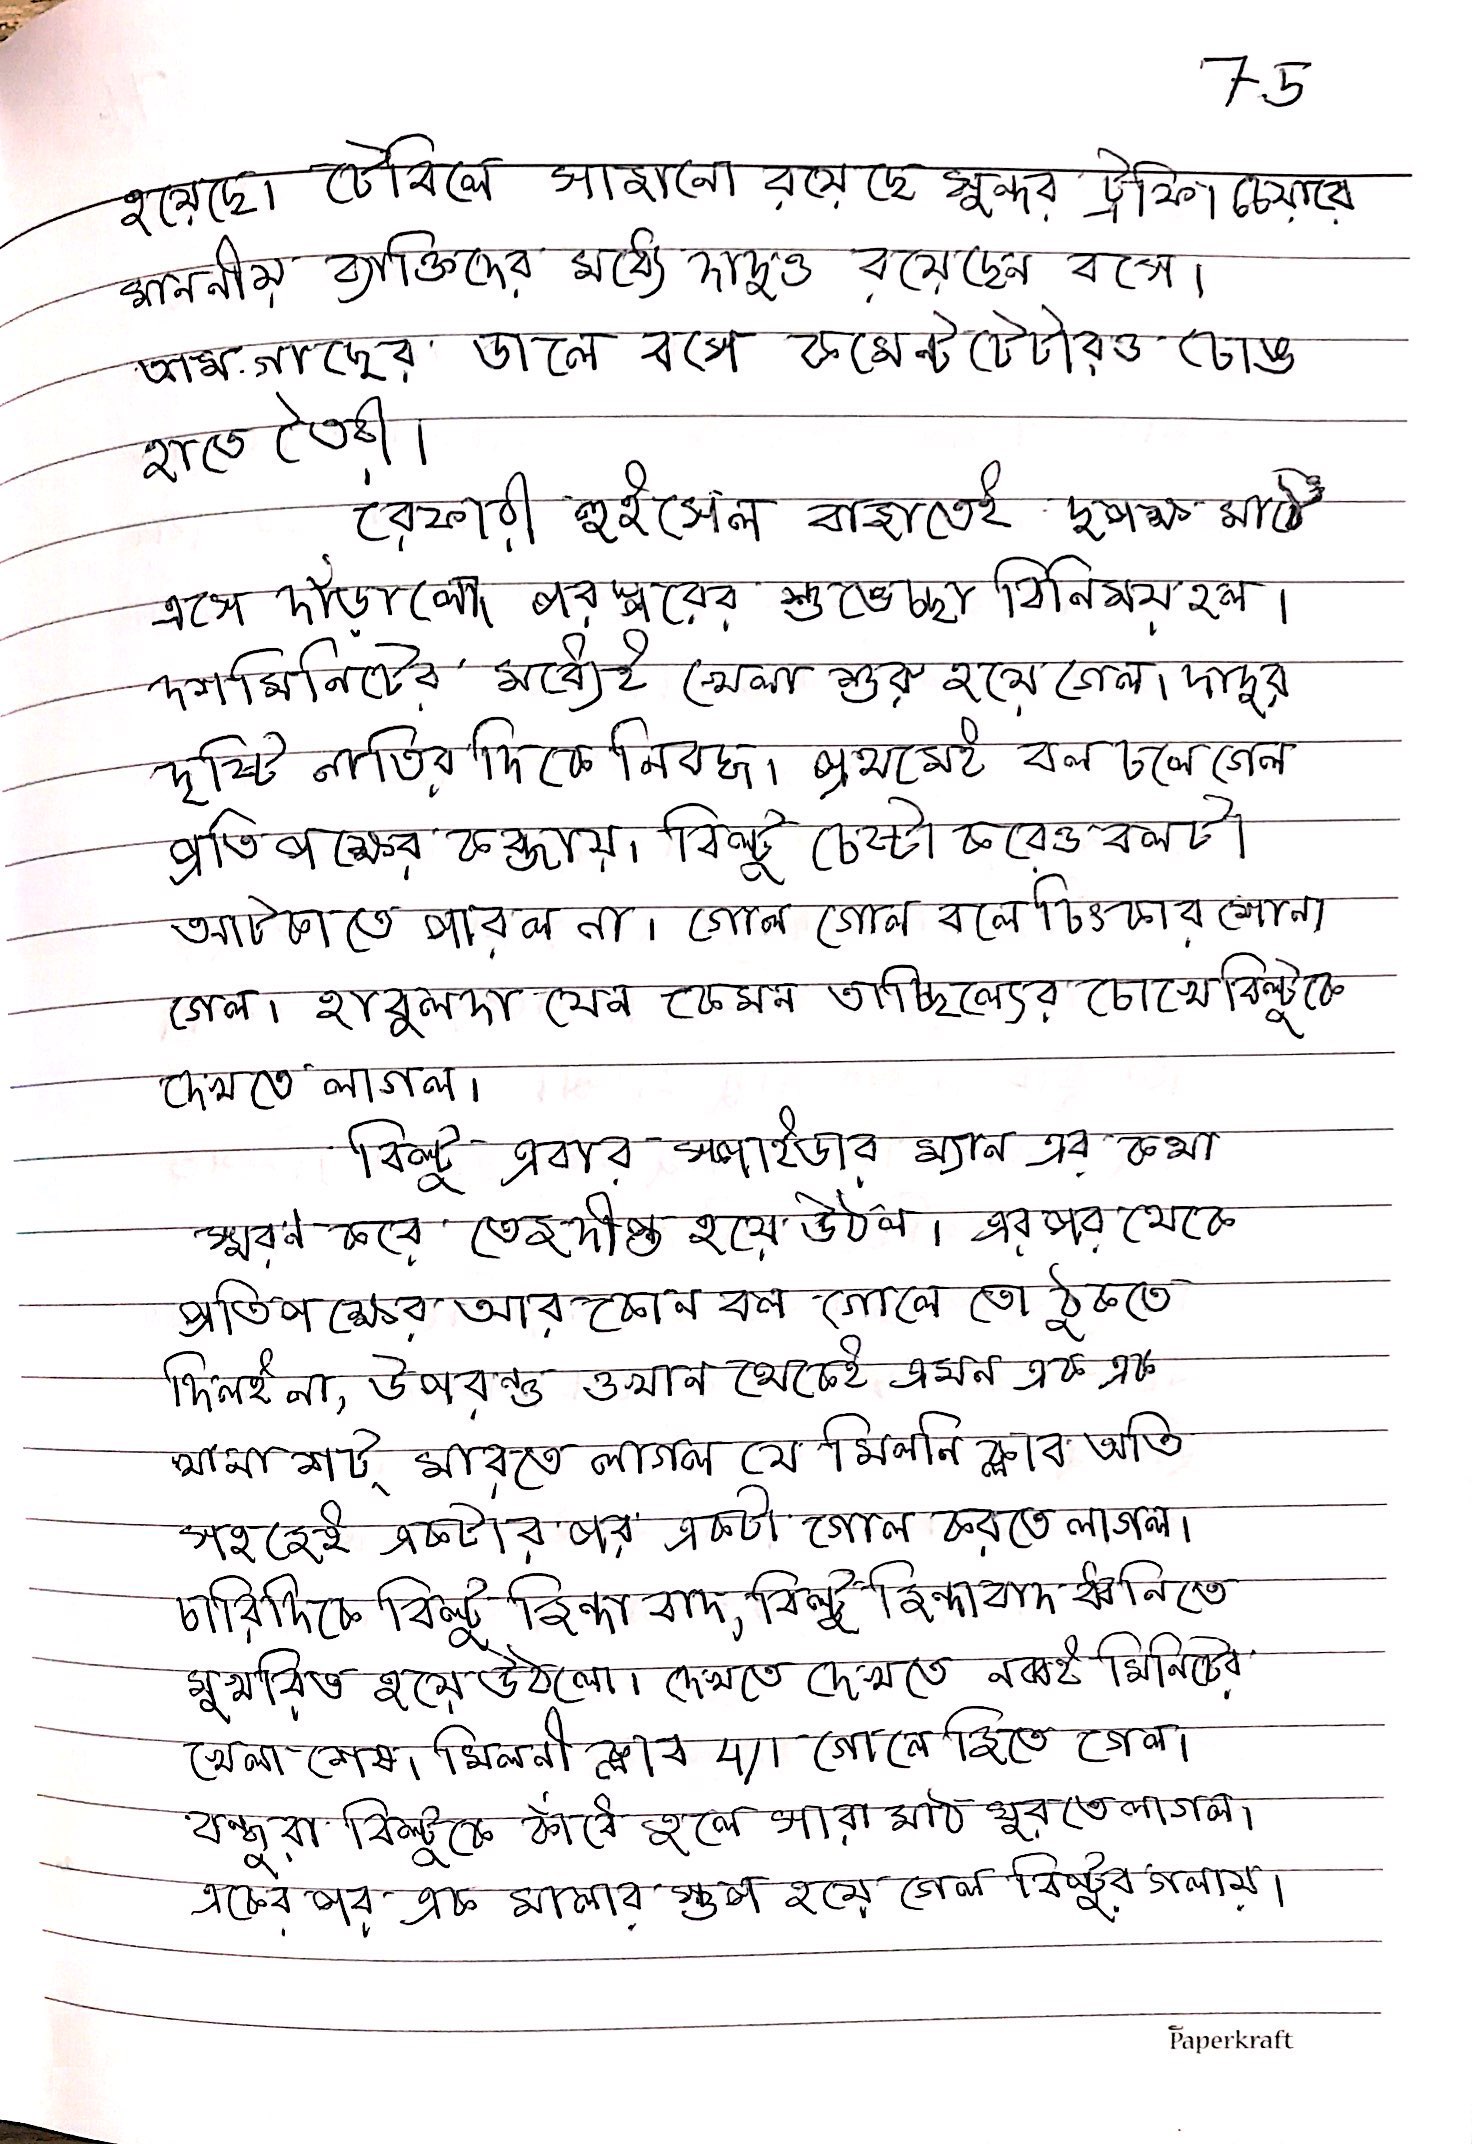 75
হয়েছে। টেবিলে সাজানো রয়েছে সুন্দর ট্রফি। চেয়ারে
মাননীয় ব্যাক্তিদের মধ্যে দাদুও রয়েছেন বসে।
আম গাছের ডালে বসে কমেন্টটেটারও চোঙ
হাতে তৈরী।
রেফারী হুইসেল বাজাতেই দুপক্ষ মাঠে
এসে দাঁড়ালো পরস্পরের শুভেচ্ছা বিনিময় হল।
দশমিনিটের মধ্যেই খেলা শুরু হয়ে গেল। দাদুর
দৃষ্টি নাতির দিকে নিবদ্ধ। প্রথমেই বল চলে গেল
প্রতিপক্ষের কব্জায়। বিল্টু চেস্টা করেও বলটা
আটকাতে পারল না। গোল গোল বলে চিৎকার শোনা
গেল। হাবুলদা যেন কেমন তাচ্ছিল্যের চোখে বিল্টুকে
দেখতে লাগল।
বিল্টু এবার স্পাইডার ম্যান এর কথা
স্মরণ করে তেজদীপ্ত হয়ে উঠল। এরপর থেকে
প্রতিপক্ষের আর কোন বল গোলে তো ঠুকতে
দিলই না, উপরন্তু ওখান থেকেই এমন এক এক
খানা শট্ মারতে লাগল যে মিলনি ক্লাব অতি
সহজেই একটার পর একটা গোল করতে লাগল।
চারিদিকে বিল্টু জিন্দাবাদ, বিল্টু জিন্দাবাদ ধ্বনিতে
মুখরিত হয়ে উঠলো। দেখতে দেখতে নব্বই মিনিটের
খেলা শেষ। মিলনী ক্লাব 4/1 গোলে জিতে গেল।
বন্ধুরা বিল্টুকে কাঁধে তুলে সারা মাঠ ঘুরতে লাগল।
একের পর এক মালার স্তুপ হয়ে গেল বিল্টুর গলায়।
Paperkraft